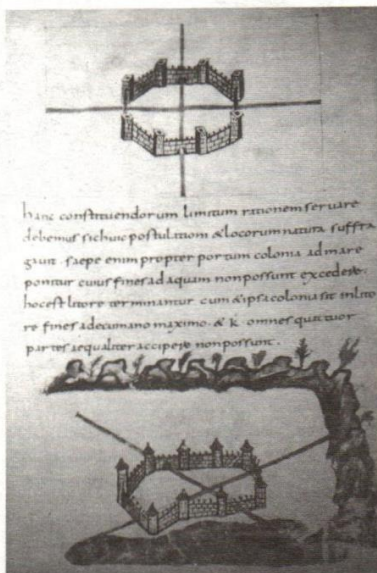 hanc constituendorum limitum rationem servare
debemus sichuic postulationi & locorum natura suffra
gavit. saepe enim propter portum colonia ad mare
ponitur cuius fines ad aquam non possunt excedere.
hoc est litore terminantur cum & ipsa colonia sit in lito
re fines a decumano maximo. & k. omnes quattuor
partes aequaliter accipere non possunt.